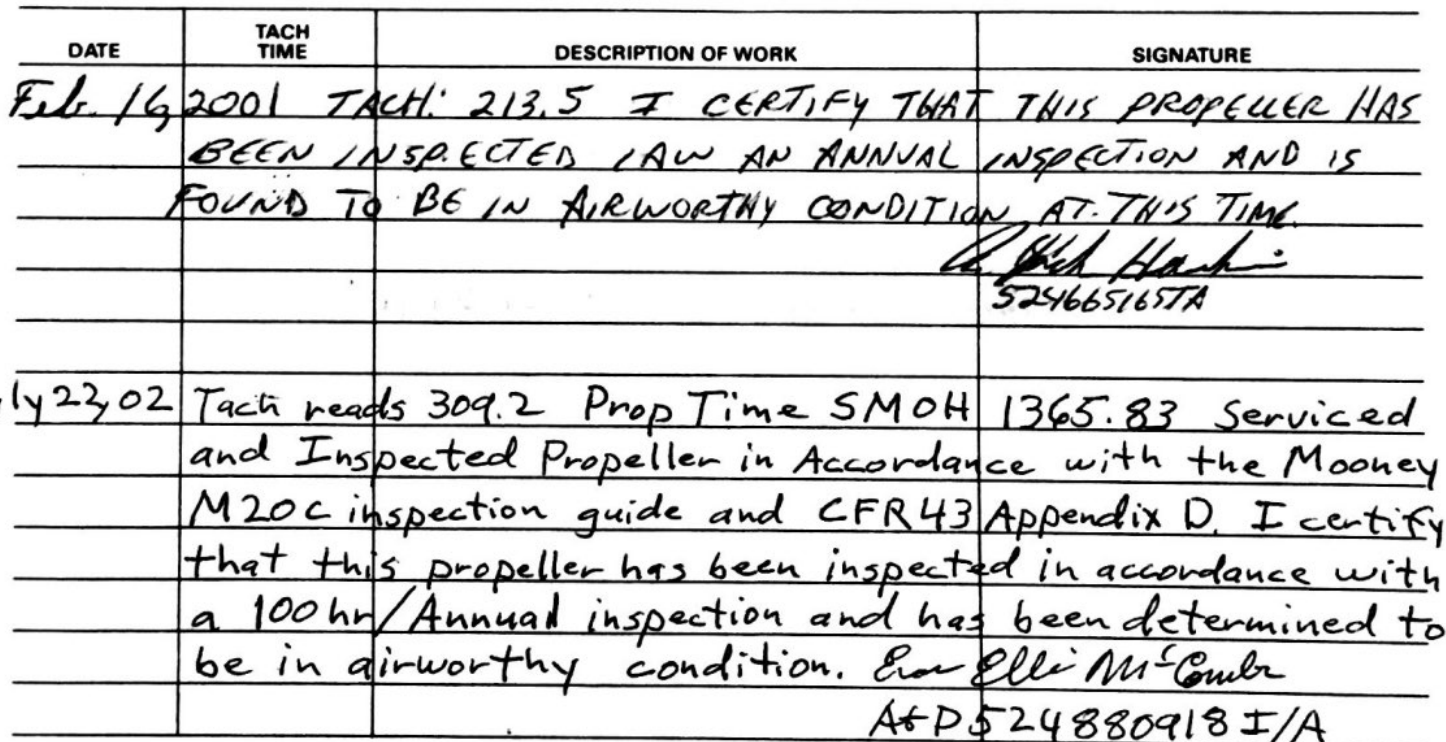 DATE TACH TIME DESCRIPTION OF WORK SIGNATURE
Feb. 16, 2001 TACH: 213.5 I CERTIFY THAT THIS PROPELLER HAS
BEEN INSPECTED IAW AN ANNUAL INSPECTION AND IS
FOUND TO BE IN AIRWORTHY CONDITION AT THIS TIME.
524665165IA
ly 22, 02 Tach reads 309.2 Prop Time SMOH 1365.83 Serviced
and Inspected Propeller in Accordance with the Mooney
M20C inspection guide and CFR43 Appendix D. I certify
that this propeller has been inspected in accordance with
a 100 hr/Annual inspection and has been determined to
be in airworthy condition.
A&P 524880918 I/A